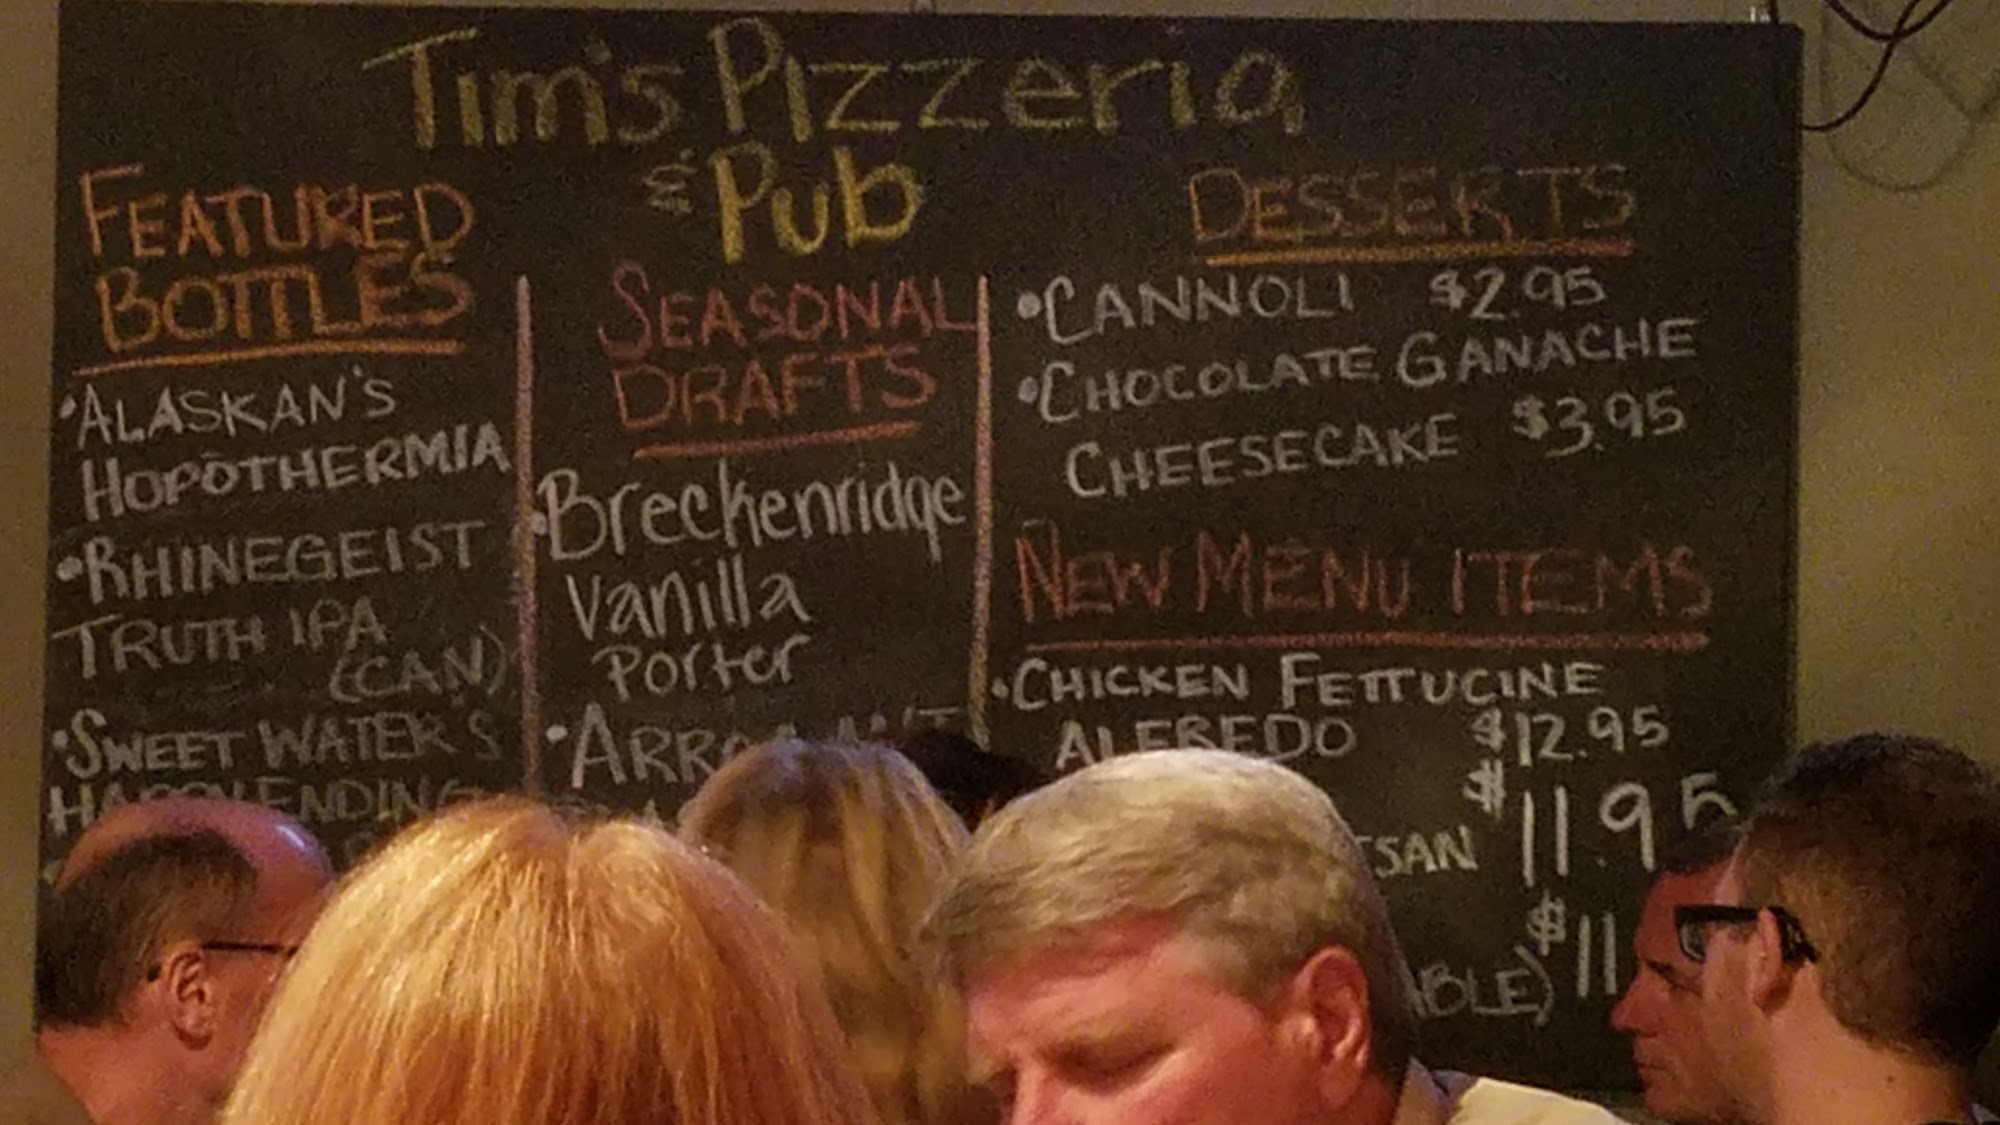 Tim's Pizzeria
& Pub
FEATURED
BOTTLES
•ALASKAN'S
HOPOTHERMIA
•RHINEGEIST
TRUTH IPA
(CAN)
•SWEET WATER'S
ENDING
SEASONAL
DRAFTS
•Breckenridge
Vanilla
Porter
DESSERTS
•CANNOLI $2.95
•CHOCOLATE GANACHE
CHEESECAKE $3.95
NEW MENU ITEMS
•CHICKEN FETTUCINE
ALFREDO $12.95
$11.95